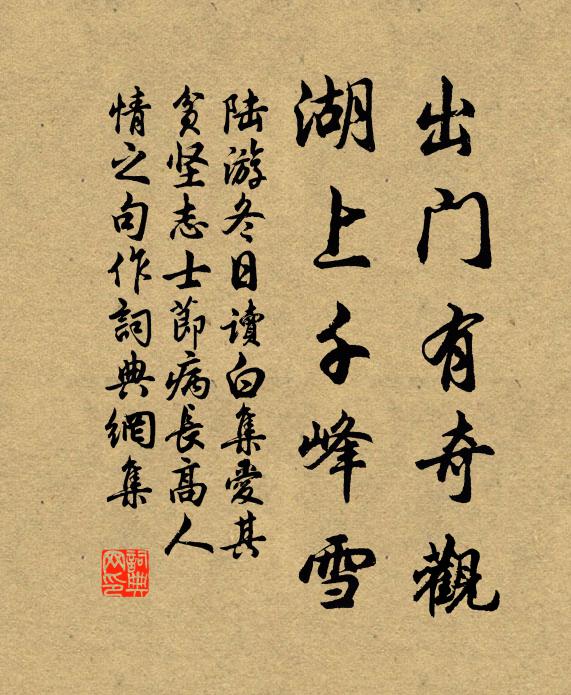 出门有奇觀
湖上千峰雪
陆游冬日读白集爱其
贫坚志士節病長高人
情之句作詞典網集
詞典
网印